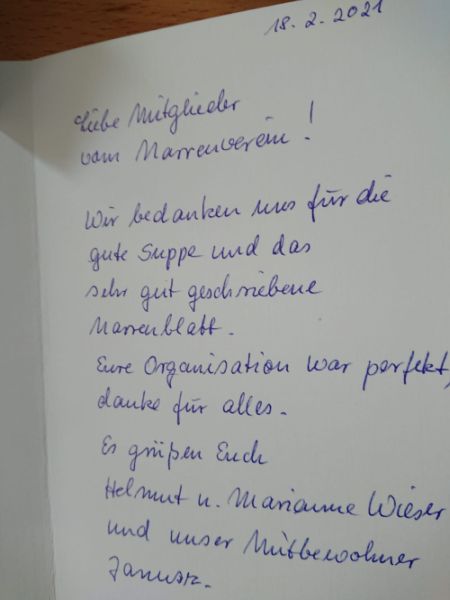 18. 2. 2021
Liebe Mitglieder
vom Narrenverein!
Wir bedanken uns für die
gute Suppe und das
sehr gut geschriebene
Narrenblatt.
Eure Organisation war perfekt,
danke für alles.
Es grüßen Euch
Helmut u. Marianne Wieser
und unser Mitbewohner
Janusz.